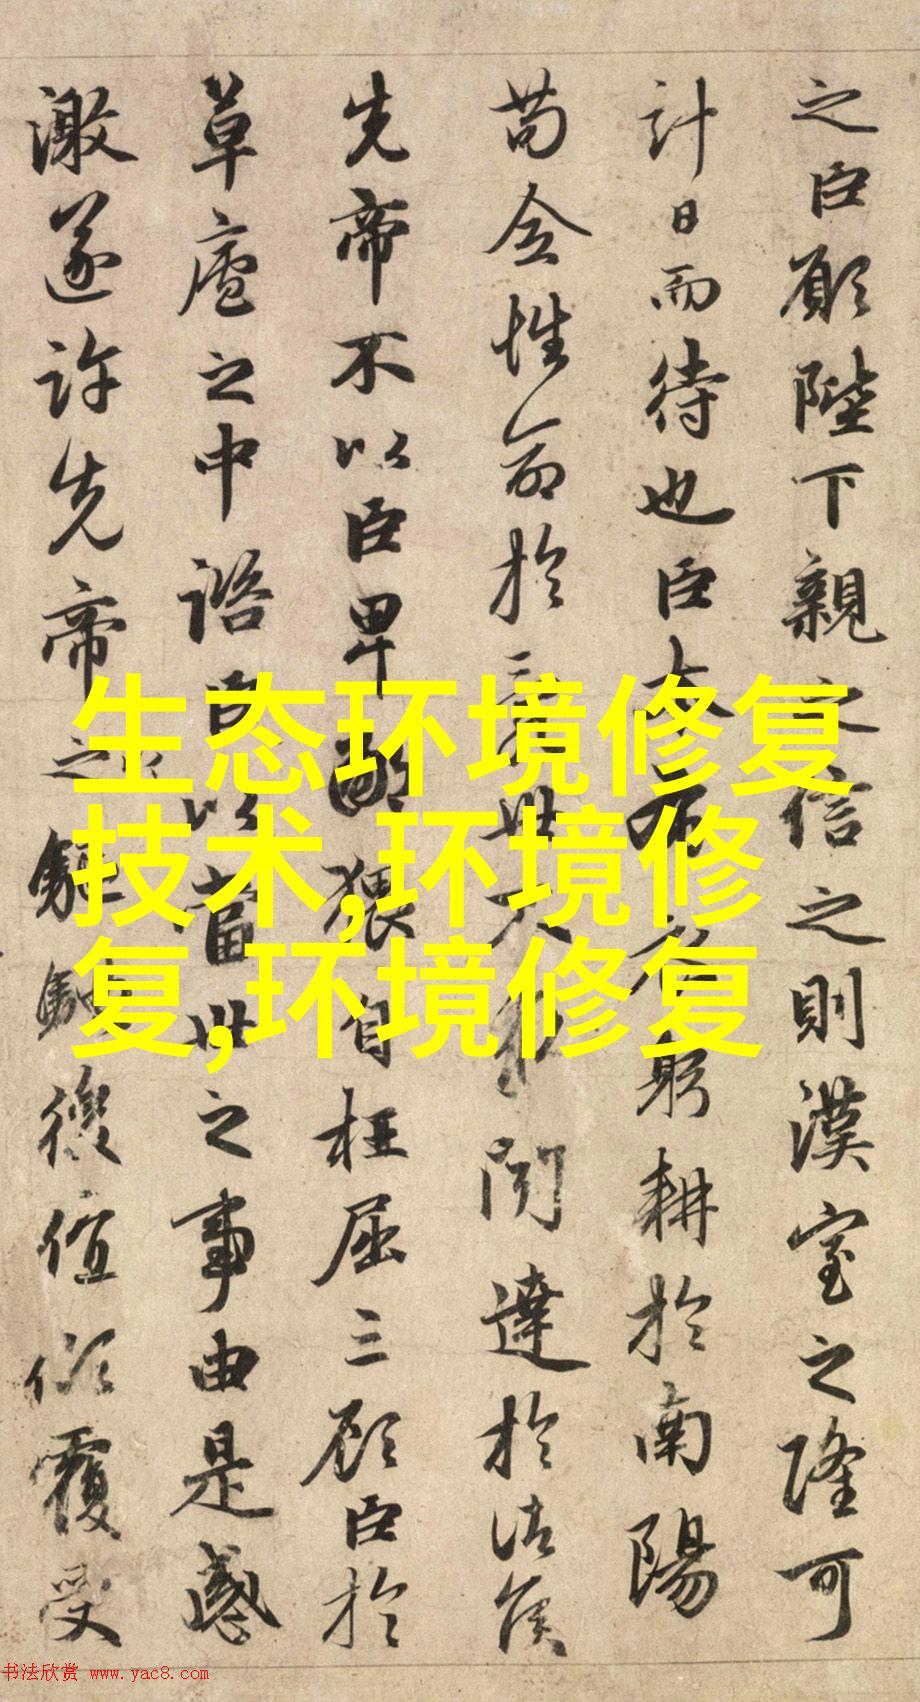 之臣願陛下親之信之則漢室之隆可
計日而待也臣本布衣躬耕於南陽
苟全性命於亂世不求聞達於諸侯
先帝不以臣卑鄙猥自枉屈三顧臣於
草廬之中諮臣以當世之事由是感
激遂許先帝以驅馳後值傾覆受
生态环境修复
技术,环境修
复,环境修复
书法欣赏 www.yac8.com